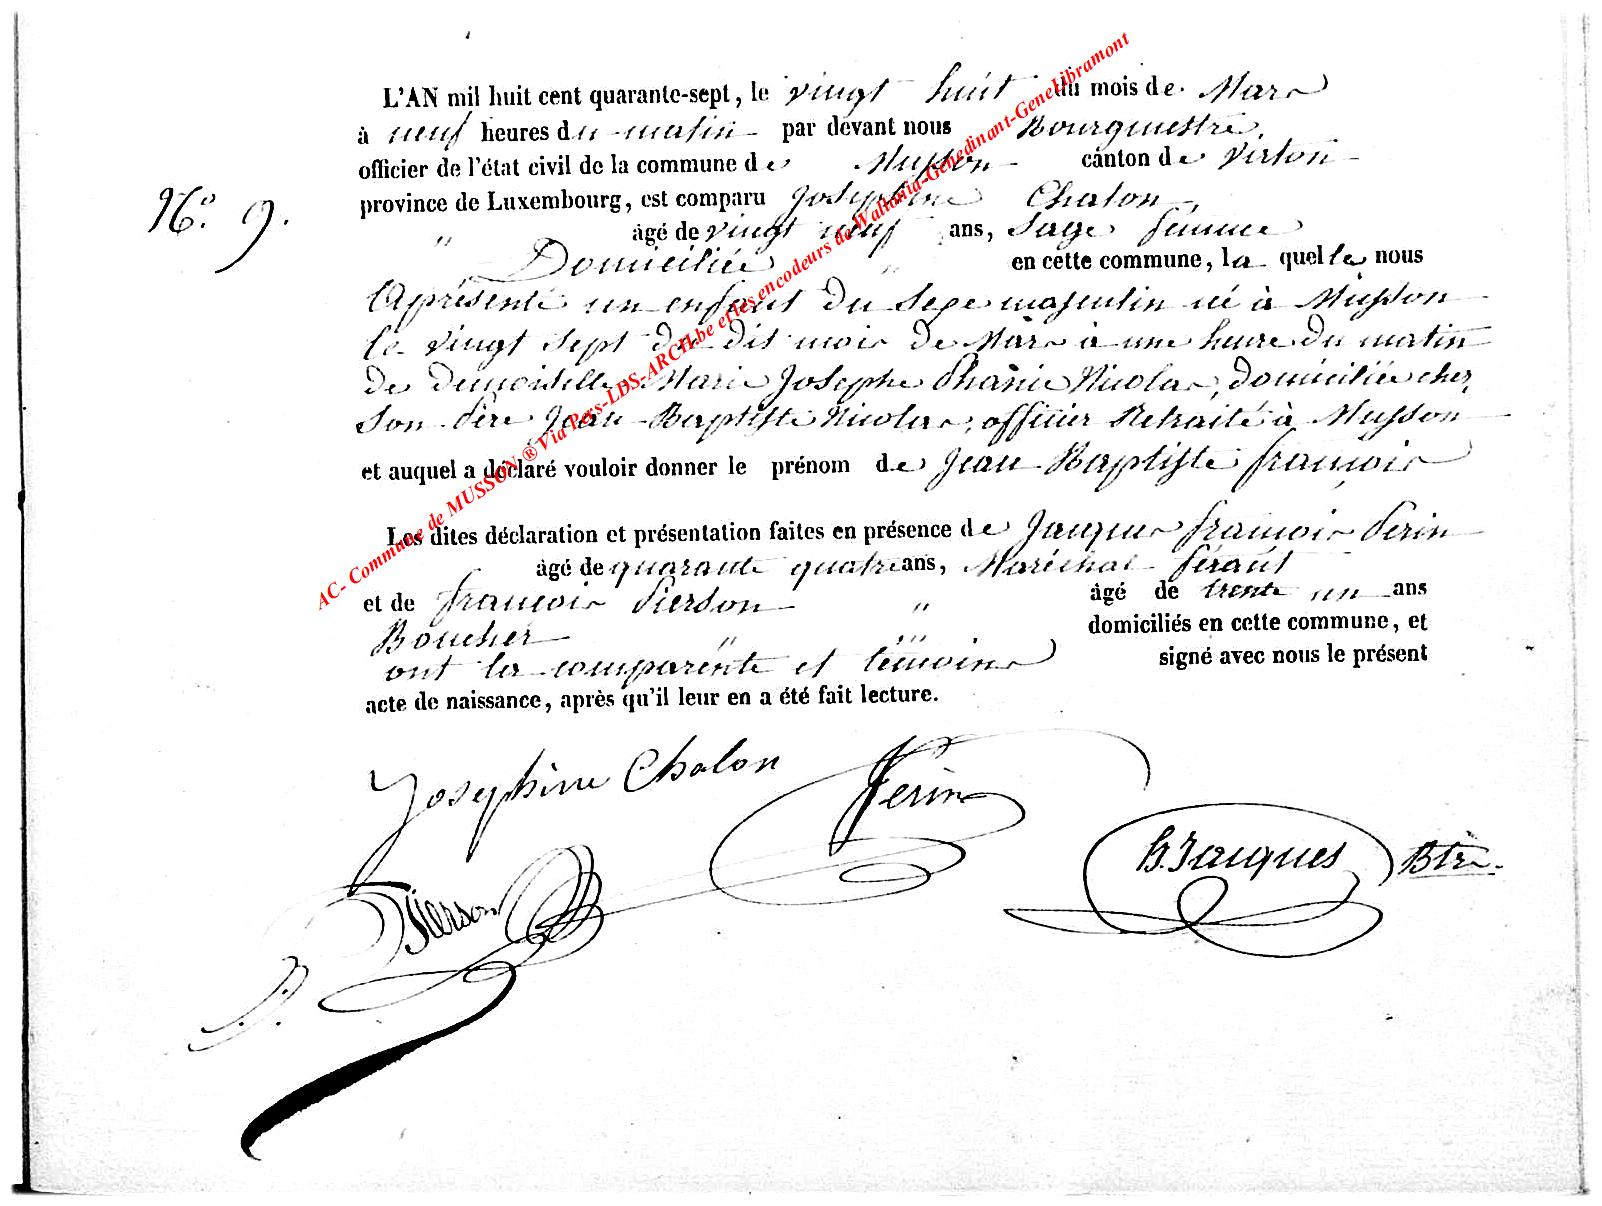 L'AN mil huit cent quarante-sept, le vingt huit du mois de Mars
à neuf heures du matin par devant nous Bourgmestre,
officier de l'état civil de la commune de Musson canton de Virton
N.o 9. province de Luxembourg, est comparu Josephine Chalon,
" âgé de vingt neuf ans, Sage femme
Domiciliée " en cette commune, la quelle nous
a présenté un enfant du sexe masculin né à Musson
le vingt sept du dit mois de Mars à une heure du matin
de demoiselle Marie Josephe Phanie Nicolas, domiciliée chez
son Père Jean-Baptiste Nicolas, officier Retraité à Musson
et auquel a déclaré vouloir donner le prénom de Jean Baptiste françois
Les dites déclaration et présentation faites en présence de Jacques françois Perin
âgé de quarante quatre ans, Maréchal férant
et de françois Pierson " âgé de trente un ans
Boucher " " domiciliés en cette commune, et
ont la comparente et témoins signé avec nous le présent
acte de naissance, après qu'il leur en a été fait lecture.
Josephine Chalon Perin
H. Jacques Btre.
Pierson
AC- Commune de MUSSON ® Via Pers-LDS-ARCH.be et les encodeurs de Wallonia-Genedinant-GeneLibramont